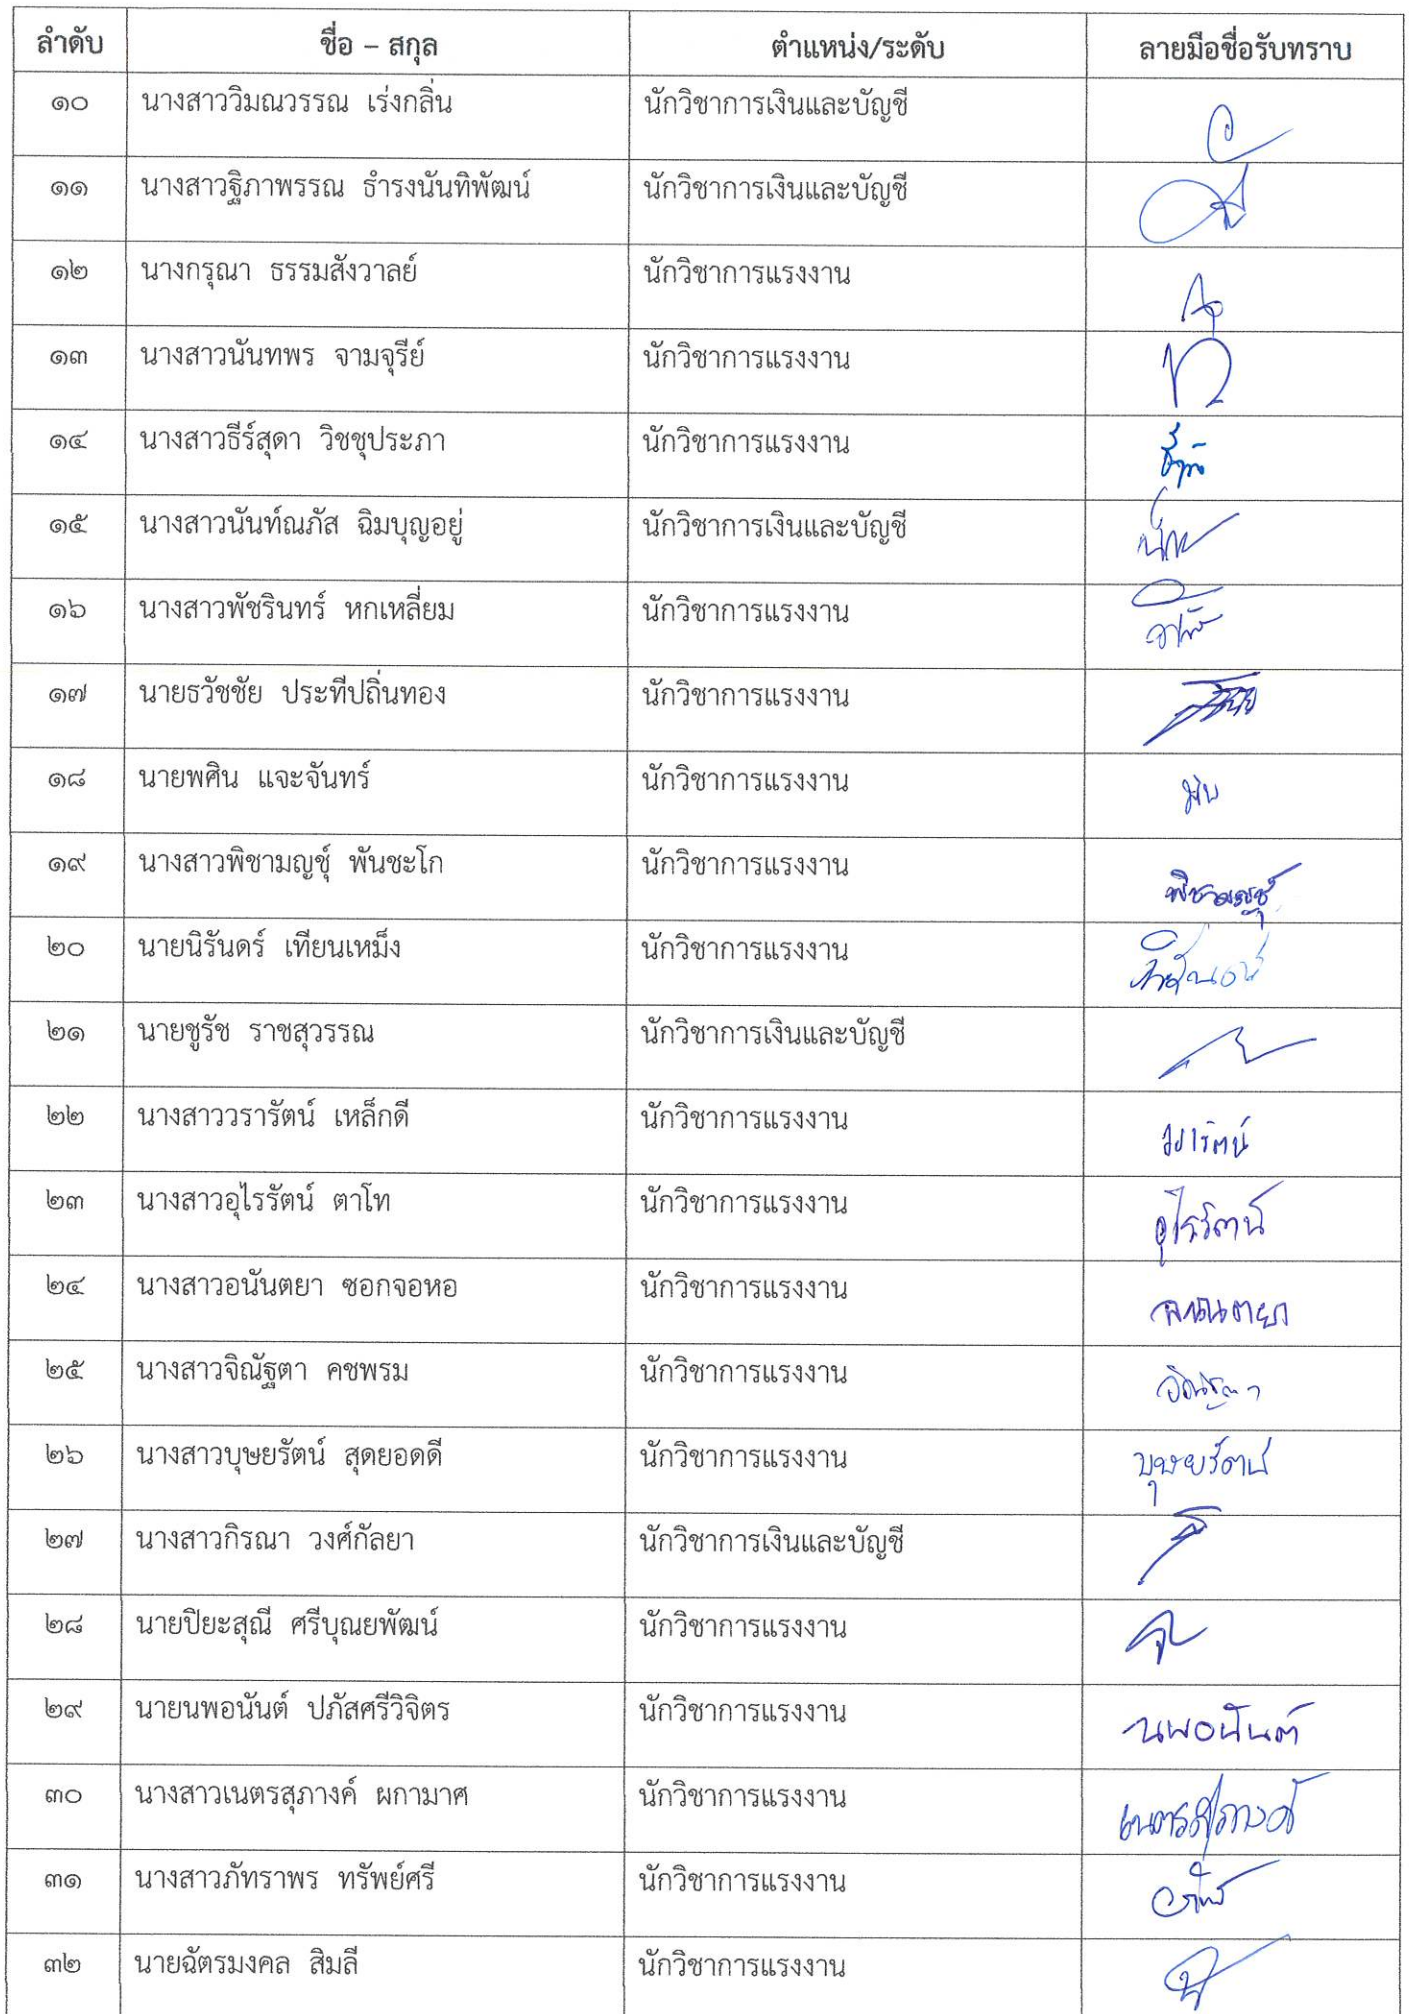 ลำดับ ชื่อ – สกุล ตำแหน่ง/ระดับ ลายมือชื่อรับทราบ
๑๐ นางสาววิมณวรรณ เร่งกลิ่น นักวิชาการเงินและบัญชี
๑๑ นางสาวฐิภาพรรณ ธำรงนันทิพัฒน์ นักวิชาการเงินและบัญชี
๑๒ นางกรุณา ธรรมสังวาลย์ นักวิชาการแรงงาน
๑๓ นางสาวนันทพร จามจุรีย์ นักวิชาการแรงงาน
๑๔ นางสาวธีร์สุดา วิชชุประภา นักวิชาการแรงงาน
๑๕ นางสาวนันท์ณภัส ฉิมบุญอยู่ นักวิชาการเงินและบัญชี
๑๖ นางสาวพัชรินทร์ หกเหลี่ยม นักวิชาการแรงงาน
๑๗ นายธวัชชัย ประทีปถิ่นทอง นักวิชาการแรงงาน
๑๘ นายพศิน แจะจันทร์ นักวิชาการแรงงาน
๑๙ นางสาวพิชามญชุ์ พันชะโก นักวิชาการแรงงาน พิชามญชุ์
๒๐ นายนิรันดร์ เทียนเหม็ง นักวิชาการแรงงาน
๒๑ นายชูรัช ราชสุวรรณ นักวิชาการเงินและบัญชี
๒๒ นางสาววรารัตน์ เหล็กดี นักวิชาการแรงงาน วรารัตน์
๒๓ นางสาวอุไรรัตน์ ตาโท นักวิชาการแรงงาน อุไรรัตน์
๒๔ นางสาวอนันตยา ซอกจอหอ นักวิชาการแรงงาน อนันตยา
๒๕ นางสาวจิณัฐตา คชพรม นักวิชาการแรงงาน
๒๖ นางสาวบุษยรัตน์ สุดยอดดี นักวิชาการแรงงาน บุษยรัตน์
๒๗ นางสาวกิรณา วงศ์กัลยา นักวิชาการเงินและบัญชี
๒๘ นายปิยะสุณี ศรีบุณยพัฒน์ นักวิชาการแรงงาน
๒๙ นายนพอนันต์ ปภัสศรีวิจิตร นักวิชาการแรงงาน นพอนันต์
๓๐ นางสาวเนตรสุภางค์ ผกามาศ นักวิชาการแรงงาน เนตรสุภางค์
๓๑ นางสาวภัทราพร ทรัพย์ศรี นักวิชาการแรงงาน
๓๒ นายฉัตรมงคล สิมลี นักวิชาการแรงงาน